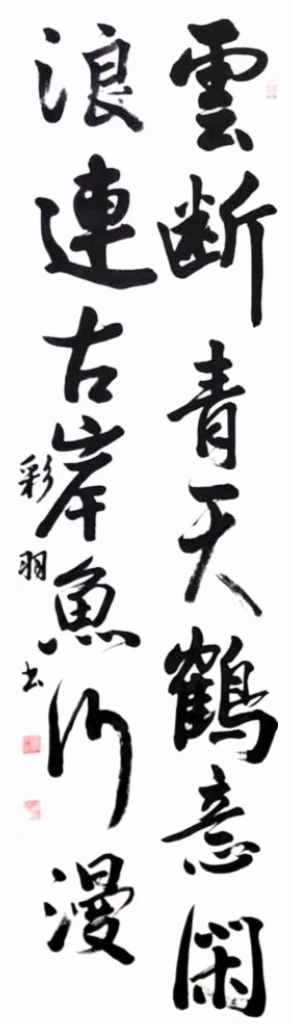 雲断青天鶴意閑
浪連古岸魚行漫
彩羽書